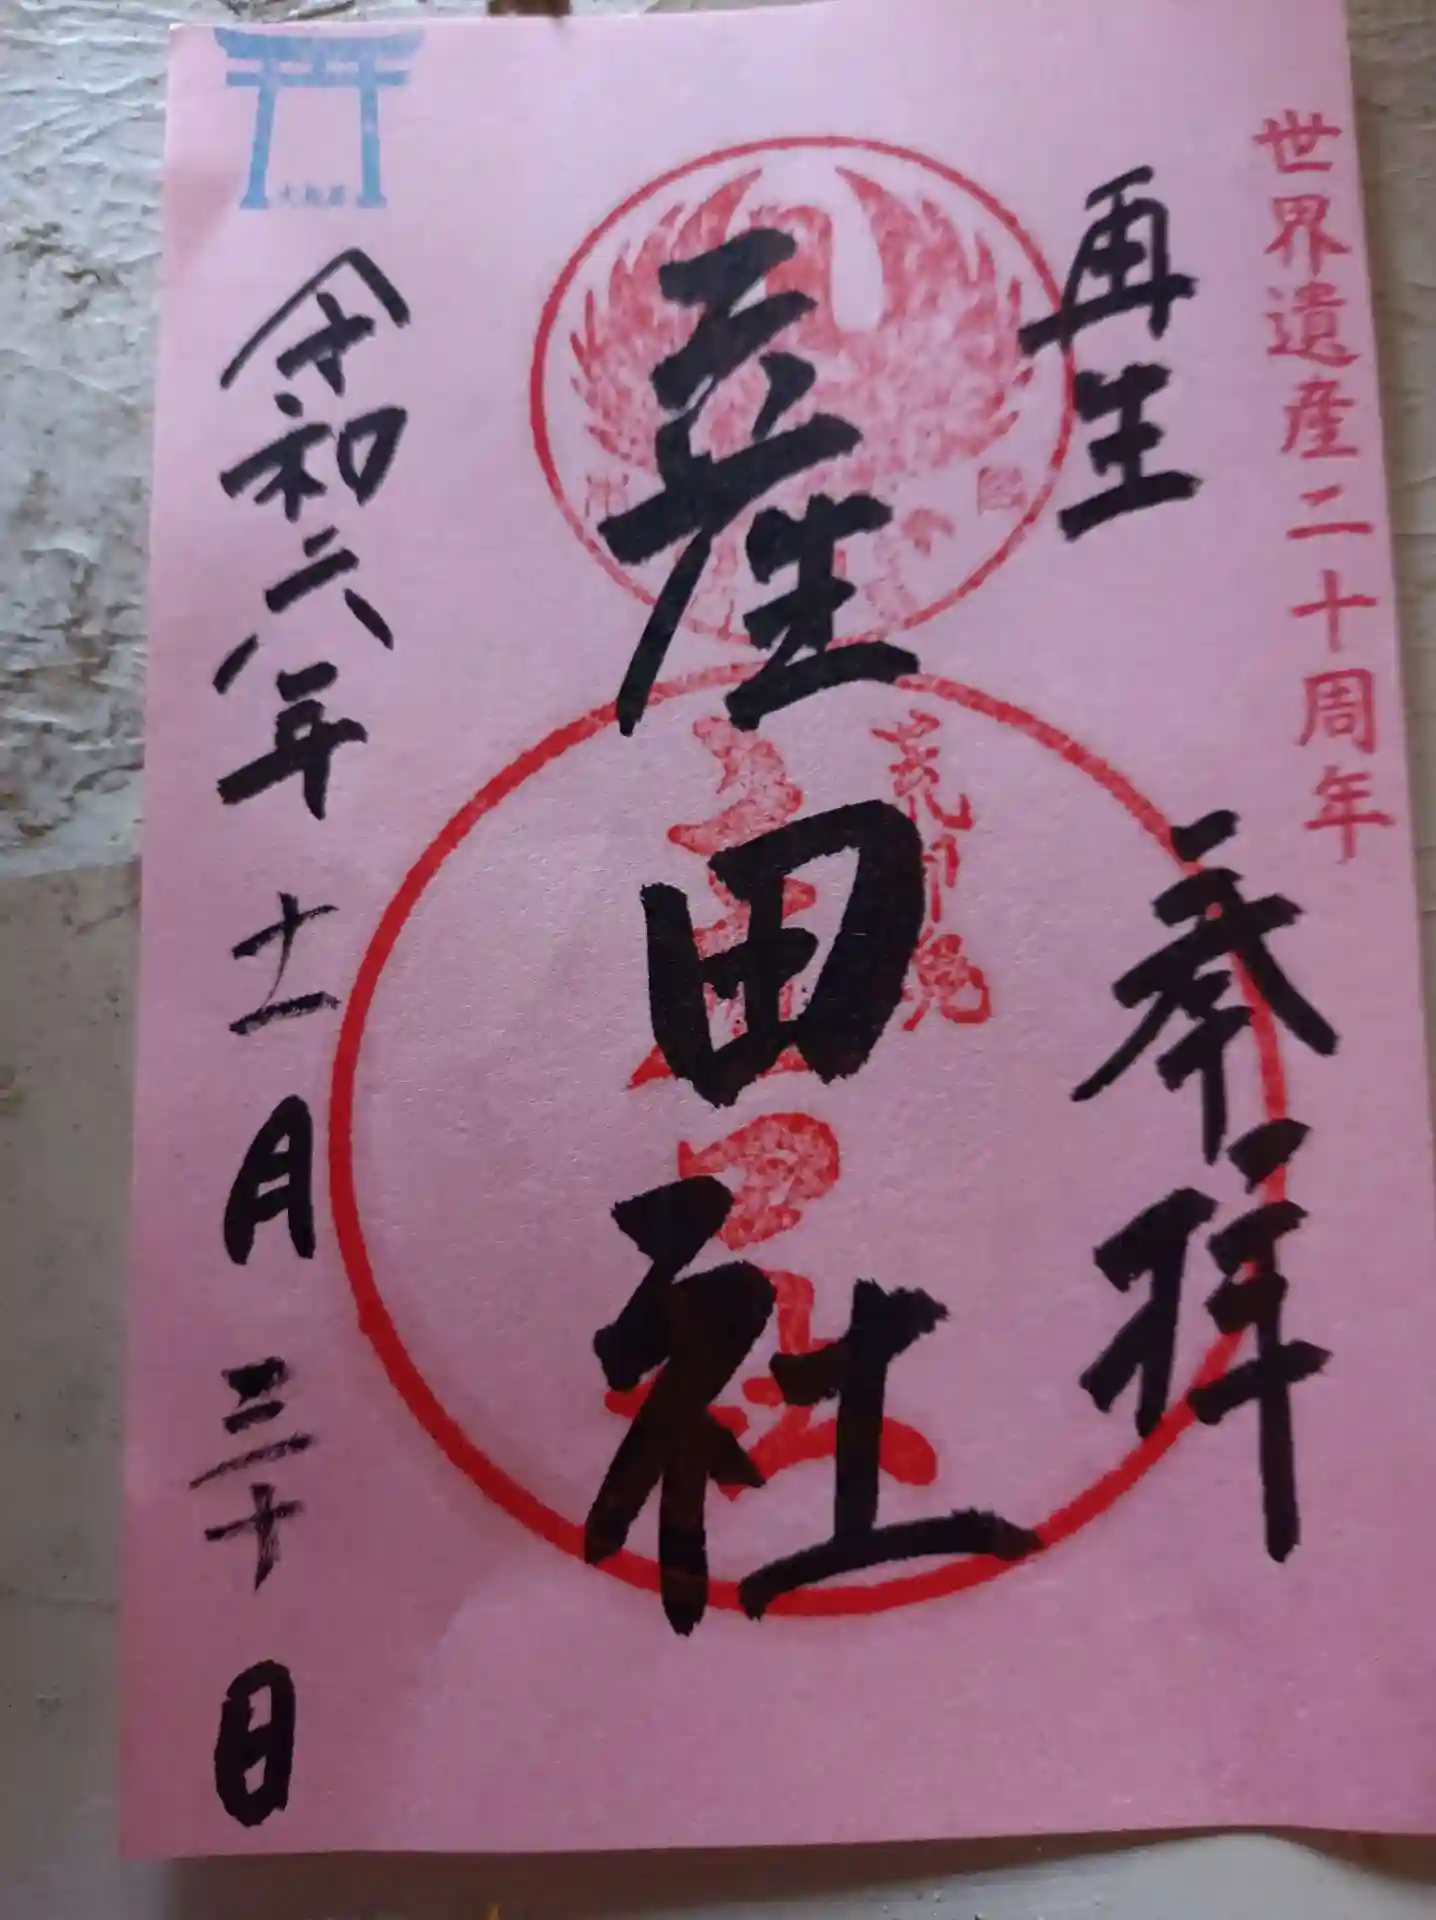 世界遺産二十周年
再生
奉拝
産田社
令和六年十一月三十日
大和座